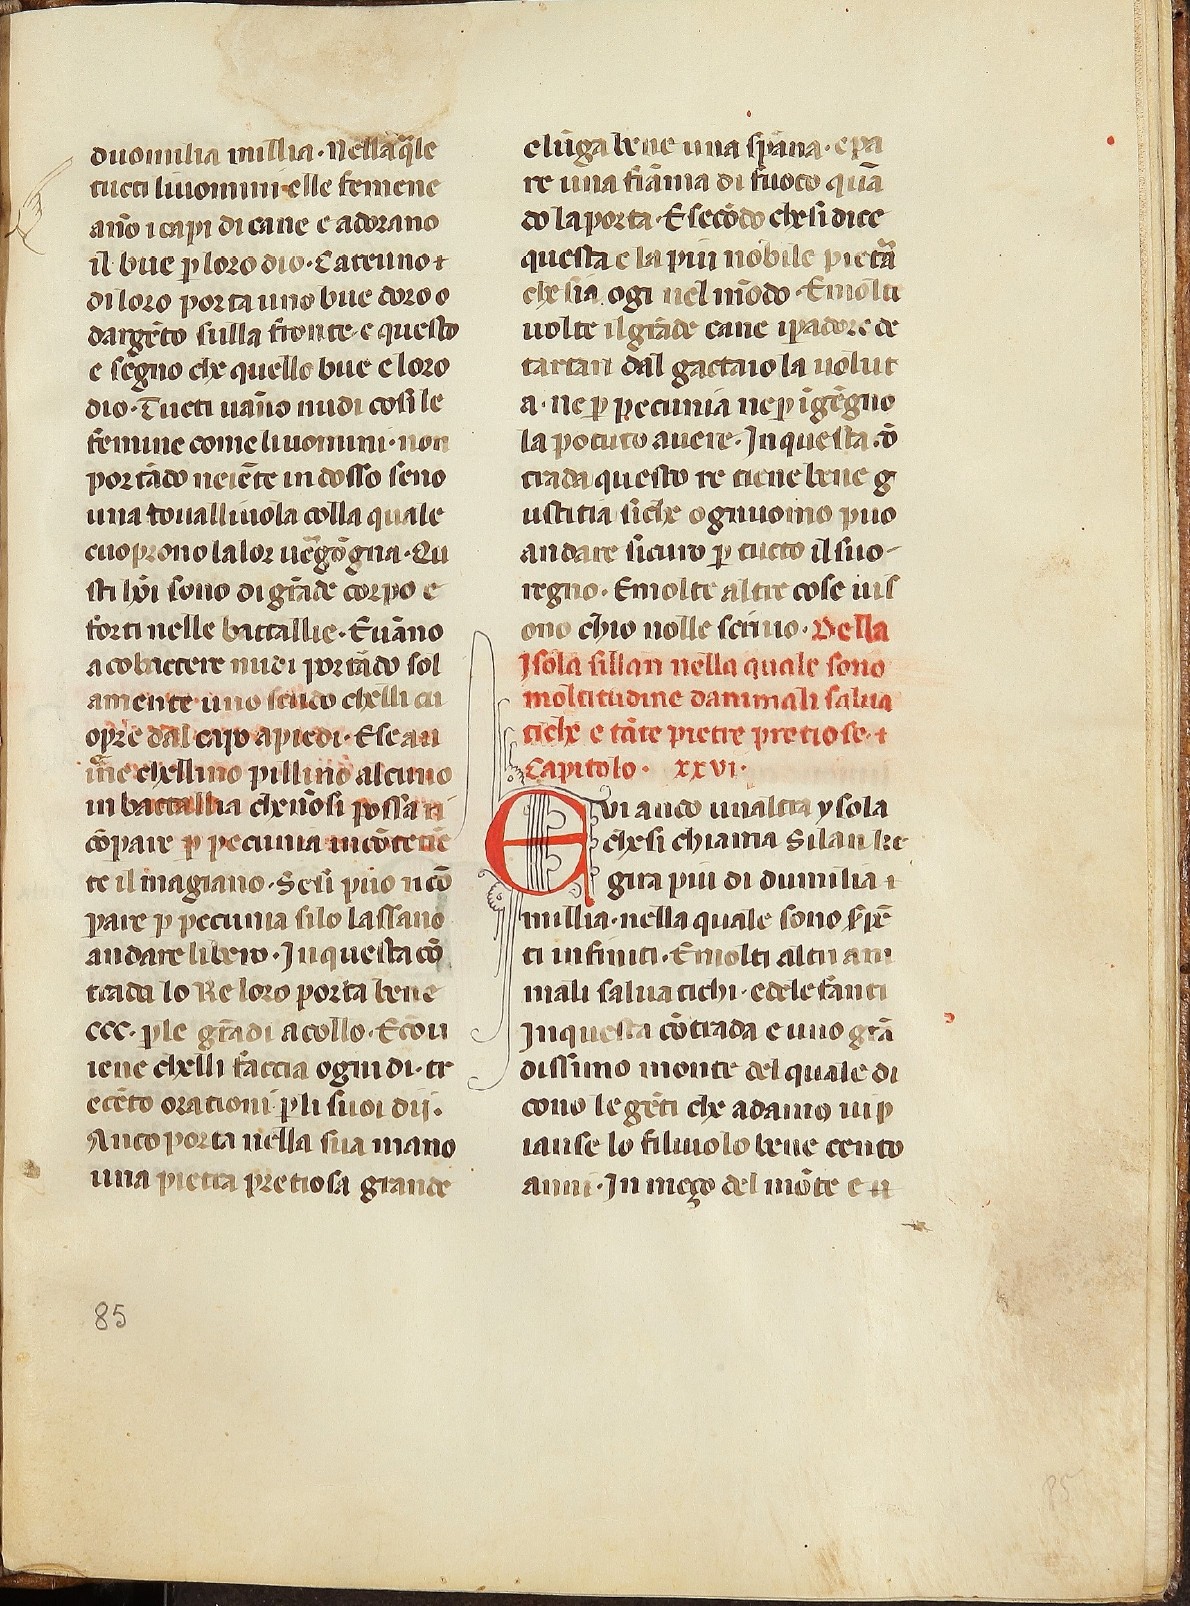 duomilia millia · Nellaq̃le
tucti liuomini elle femene
ãno i capi di cane e adorano
il bue ꝑ loro dio · Cateuno ⁊
di loro porta uno bue doro o
dargẽto sulla fronte e questo
e segno che quello bue e loro
dio · Tucti uãno nudi cosi le
femine come liuomini · non
portãdo neiẽte in dosso seno
una toualliuola colla quale
cuoprono la lor uẽgõgna · Qu
sti hõi sono di grãde corpo e
forti nelle battallie · E uãno
a cobactere nudi portãdo sol
amente uno scudo chelli cu
opre dal capo a piedi · E se an
chellino pillino alcuno
in battallia che nõsi possa ri
cõpare ꝑ pecunia
te il magiano · Se si puo ricõ
pare ꝑ pecunia silo lassano
andare libero · In questa cõ
trada lo Re loro porta bene
ccc · ꝑle grãdi a collo · E cõu
iene chelli faccia ogni di · tr
ecẽto orationi ꝑ li suoi dij ·
Anco porta nella sua mano
una pietra pretiosa grande
e lũga bene una spãna · e pa
re una fiãma di fuoco quã
do la porta · E secõdo che si dice
questa e la piu nobile pietã
che sia ogi nel mõdo · E molti
uolte il grãde cane ipadore de
tartari dal gactaio la uolut
a · ne ꝑ pecunia ne ꝑ ĩgẽgno
la potuto auere · In questa cõ
trada questo re tiene bene g
iustitia siche ogniuomo puo
andare sicuro ꝑ tucto il suo
regno · E molte altre cose uis
ono chio nolle scriuo · Della
Isola sillan nella quale sono
moltitudine danimali salua
tiche e tãte pietre pretiose ·
Capitolo · xxvi ·
EVi anco unaltra ysola
che si chiama Silan ke
gira piu di dumilia ⁊
millia · nella quale sono sẽpẽ
ti infiniti · E molti altri ani
mali saluatichi · e delefanti
In questa cõtrada e uno grã
dissimo monte del quale di
cono le gẽti che adamo ui p
ianse lo filiuolo bene cento
anni · In meço del mõte e
85
85